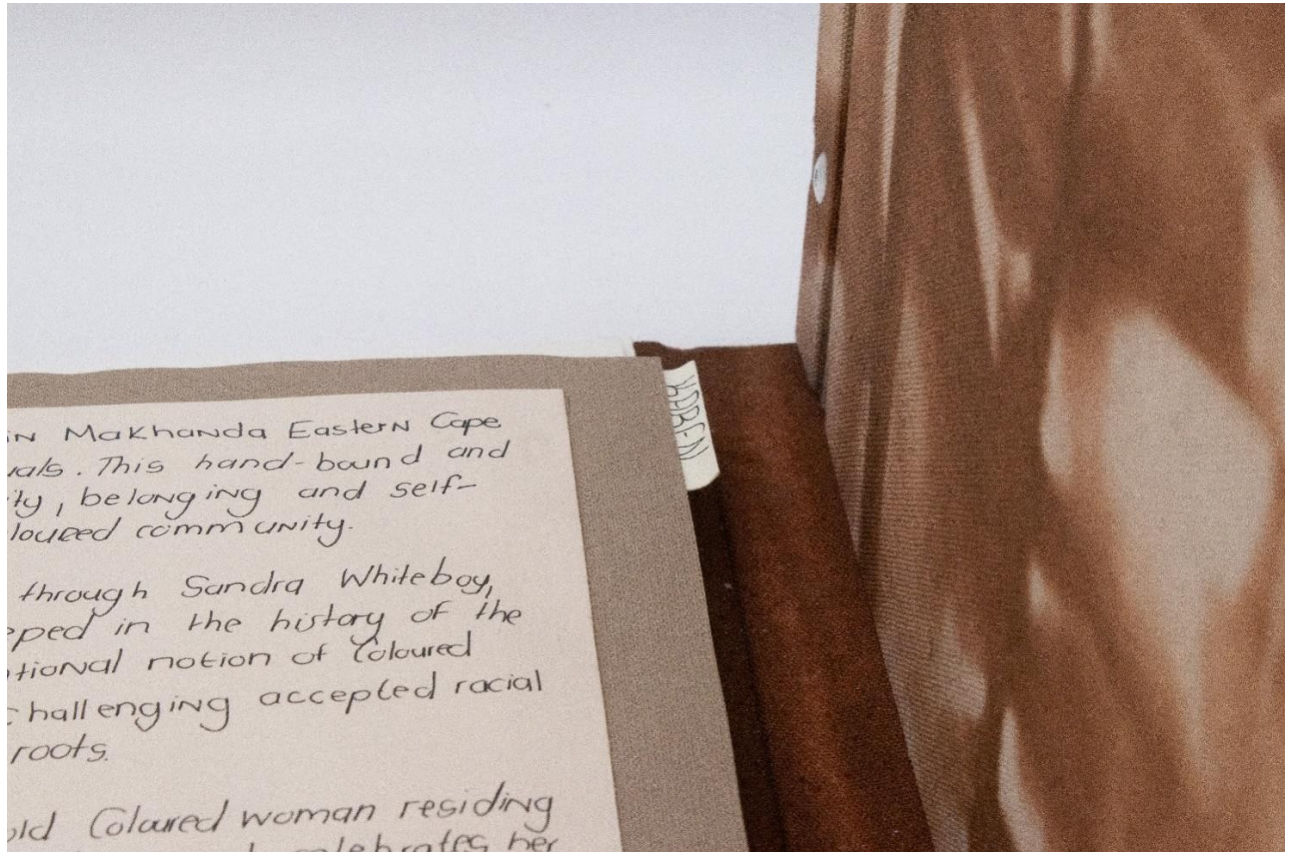 in Makhanda Eastern Cape
This hand-bound and
belonging and self-
community.
through Sandra Whiteboy,
in the history of the
notion of Coloured
challenging accepted racial
roots.
Coloured woman residing
celebrates her